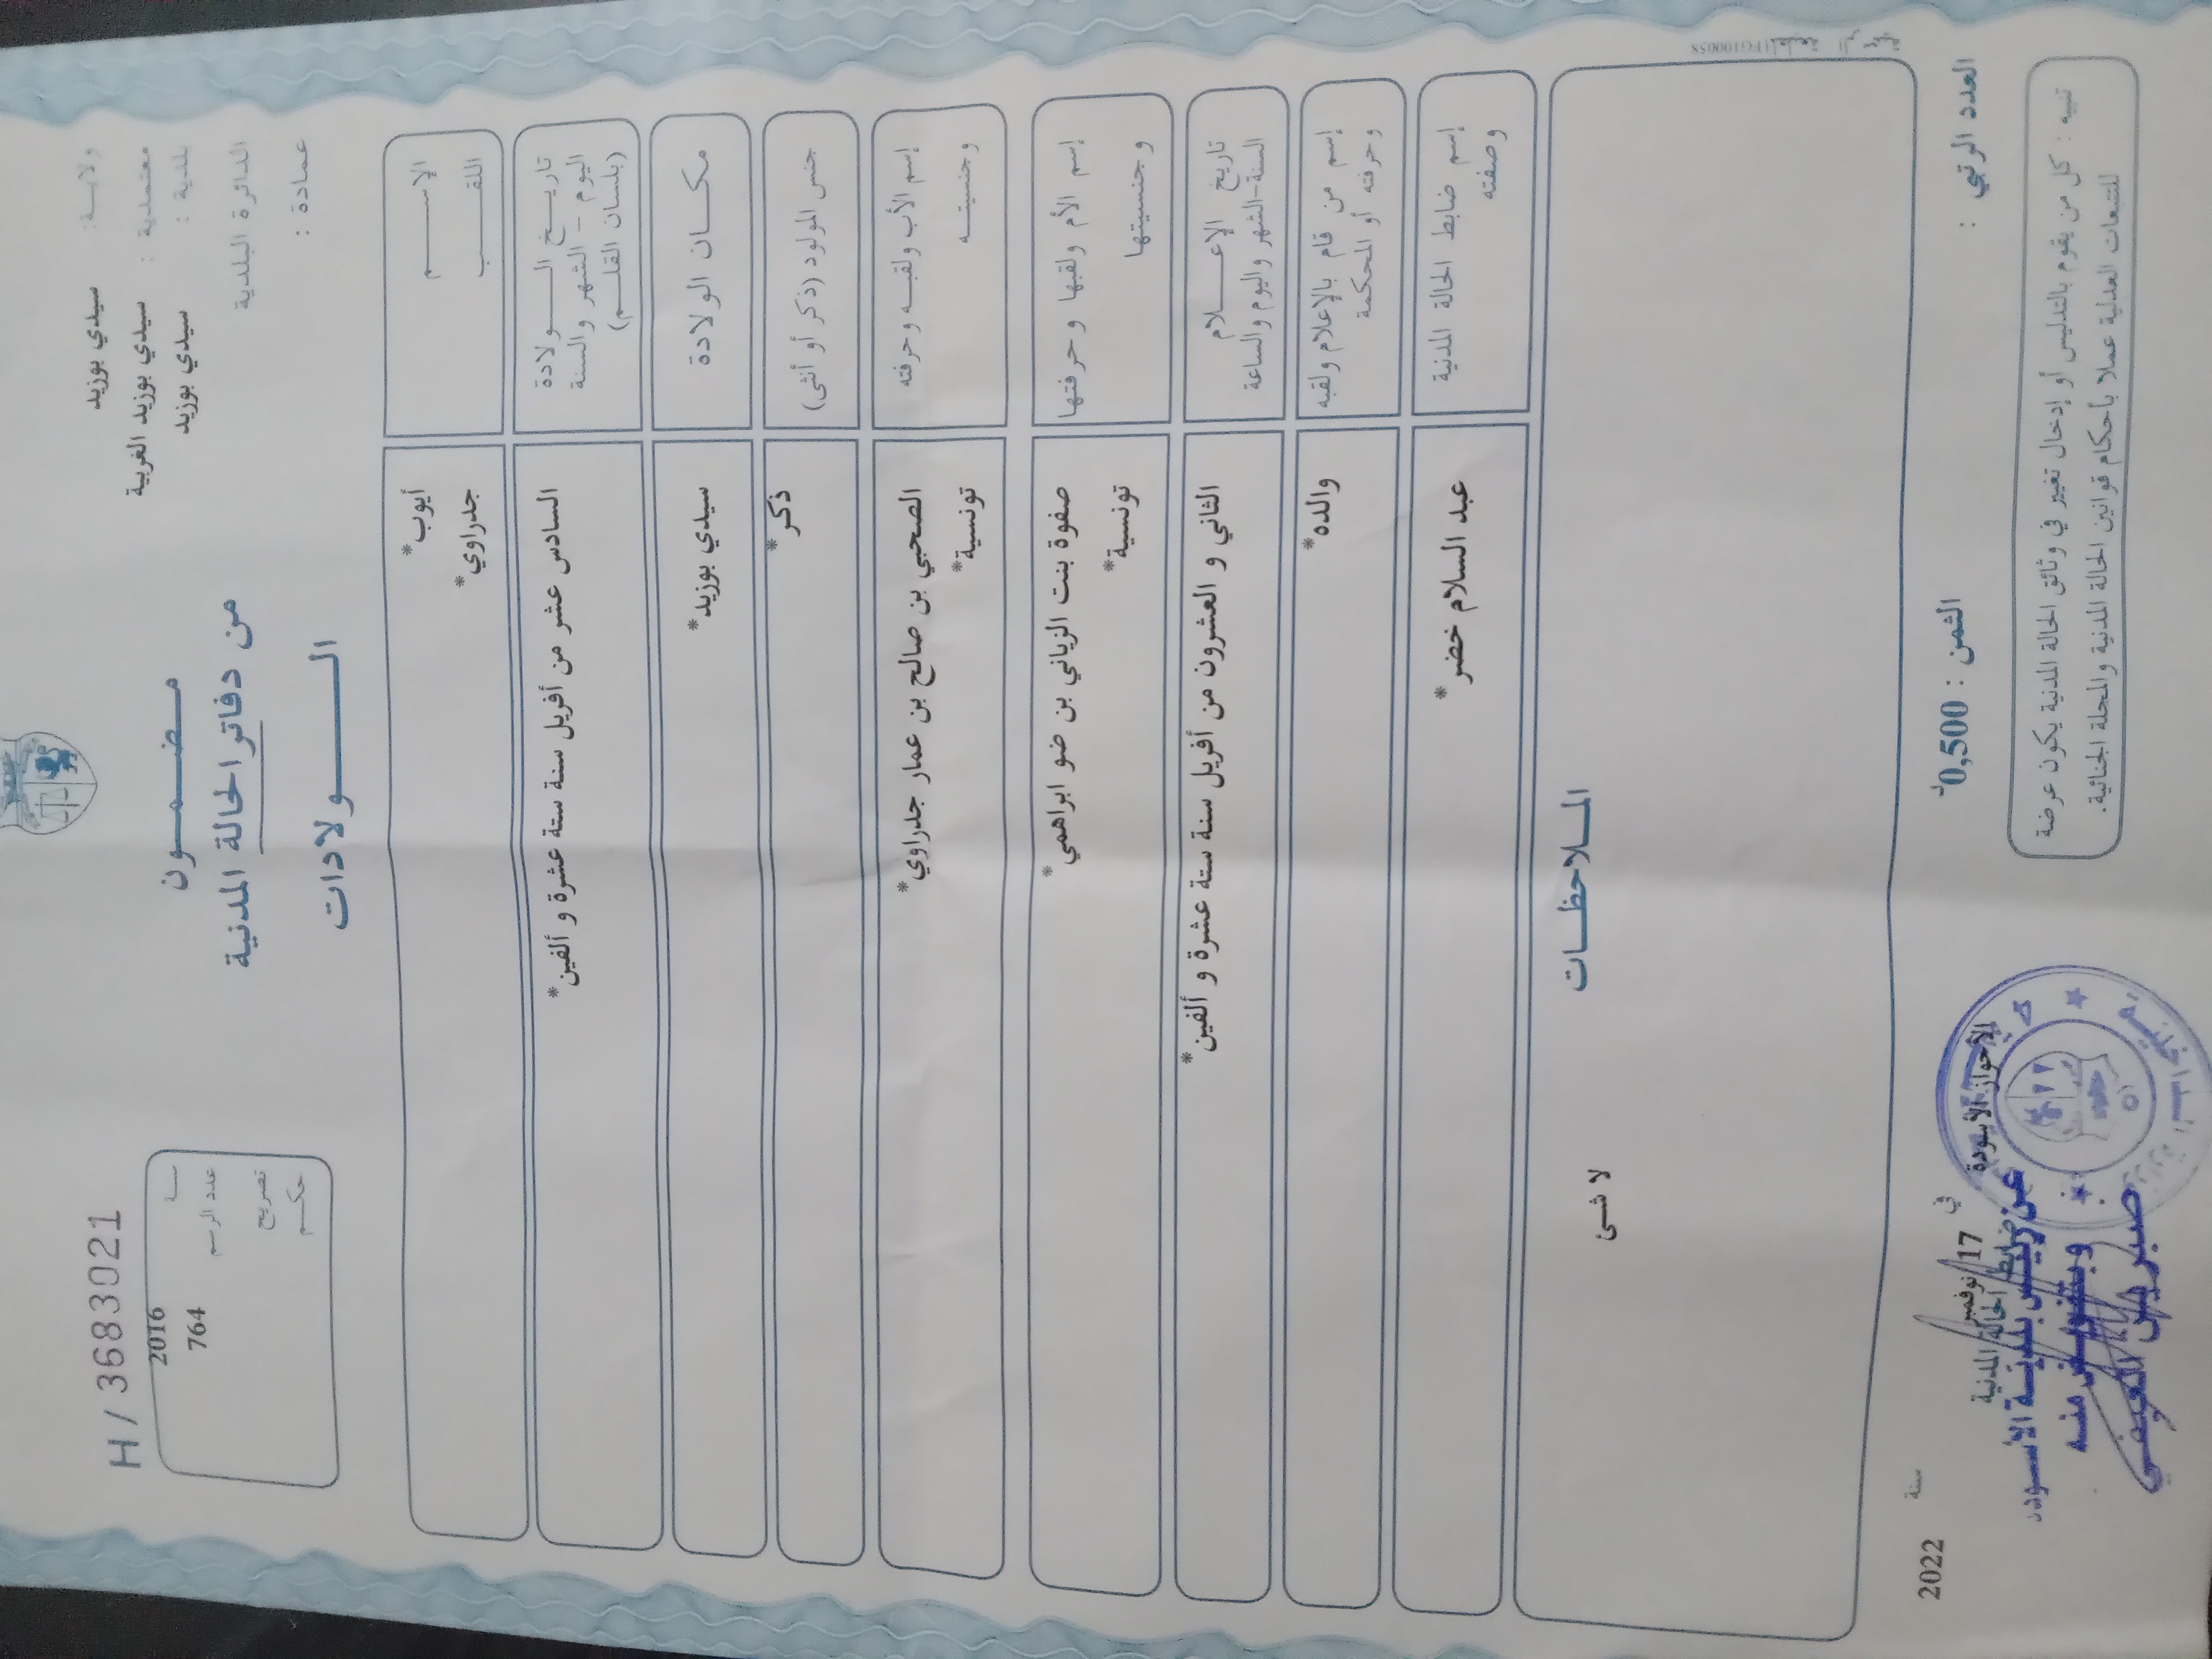 ولايـة: سيدي بوزيد
معتمدية : سيدي بوزيد الغربية
بلدية : سيدي بوزيد
الدائرة البلدية
عمادة :
مـضـمـون
من دفاتر الحالة المدنية
الـــولادات
H / 3683021
سنة 2016
عدد الرسم 764
تصريح
حكـم
الإســـم أيوب*
اللقـــب جدراوي*
تاريــخ الـــولادة
اليوم - الشهر والسنة
(بلسان القلـم)
السادس عشر من أفريل سنة ستة عشرة و ألفين*
مكــان الولادة سيدي بوزيد*
جنس المولود (ذكر أو أنثى) ذكر*
إسم الأب ولقبـه وحرفته الصحبي بن صالح بن عمار جدراوي*
وجنسيتــه تونسية*
إسم الأم ولقبها وحرفتها صفوة بنت الزياني بن ضو ابراهمي*
وجنسيتها تونسية*
تاريخ الإعــلام
السنة-الشهر واليوم والساعة
الثاني و العشرون من أفريل سنة ستة عشرة و ألفين*
إسم من قام بالإعلام ولقبه
وحرفته أو المحكمة
والده*
إسم ضابط الحالة المدنية
وصفته
عبد السلام خضر*
المـلاحظـات
لا شئ
العدد الرتبي :
الثمن : 0,500د
الأحواز الأسودة في 17 نوفمبر سنة 2022
ضابط الحالة المدنية
عن رئيس بلدية الأسودة
وبتفويض منه
تنبيه : كل من يقوم بالتدليس أو إدخال تغيير في وثائق الحالة المدنية يكون عرضة
للتتبعات العدلية عملا بأحكام قوانين الحالة المدنية والمجلة الجنائية.